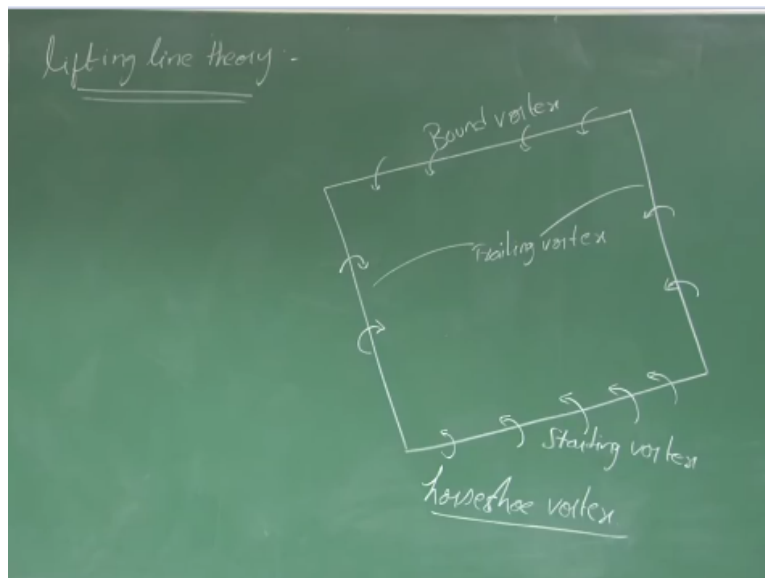 lifting line theory :-
Bound vortex
Trailing vortex
Starting vortex
horseshoe vortex